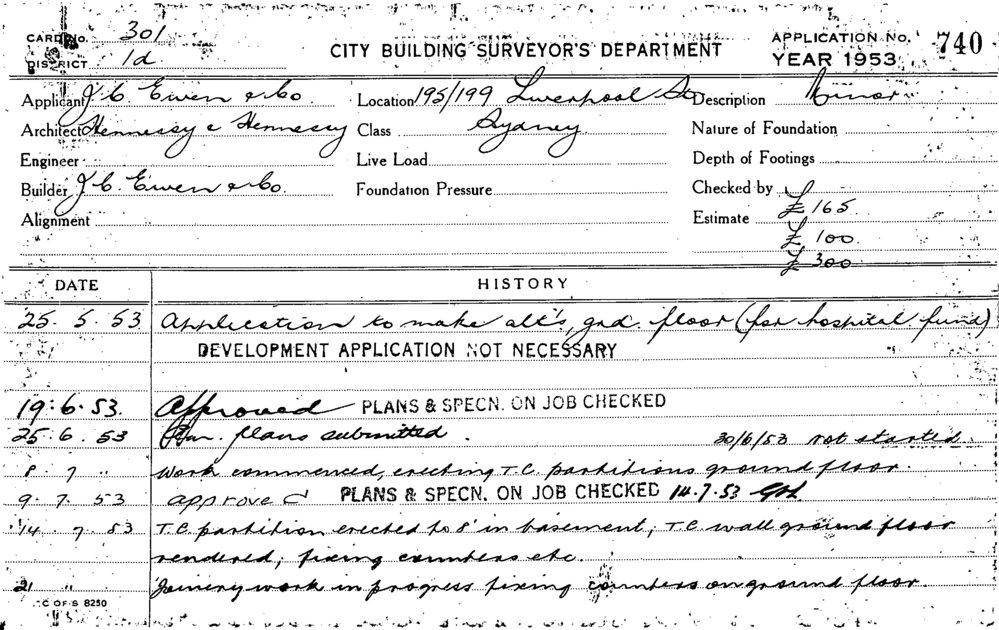 CARD No. 301
DISTRICT 1d
CITY BUILDING SURVEYOR'S DEPARTMENT
APPLICATION No. 740
YEAR 1953
Applicant J. C. Ewen & Co Location 195/199 Liverpool St Description Minor
Architect Hennessy & Hennessy Class Sydney Nature of Foundation
Engineer Live Load Depth of Footings
Builder J. C. Ewen & Co. Foundation Pressure Checked by
Alignment Estimate £ 165
£ 100
£ 300
DATE HISTORY
25. 5. 53 Application to make alt's, grd. floor (for hospital fund)
DEVELOPMENT APPLICATION NOT NECESSARY
19. 6. 53. Approved PLANS & SPECN. ON JOB CHECKED
25. 6. 53 plans submitted. 30/6/53 not started.
8. 7 " Work commenced, erecting T.C. partitions ground floor.
9. 7. 53 approved PLANS & SPECN. ON JOB CHECKED 14.7.53
14 7. 53 T.C. partition erected to 8' in basement, T.C. wall ground floor
rendered, fixing counters etc.
21 " Joinery work in progress fixing counters on ground floor.
C OF S 8250